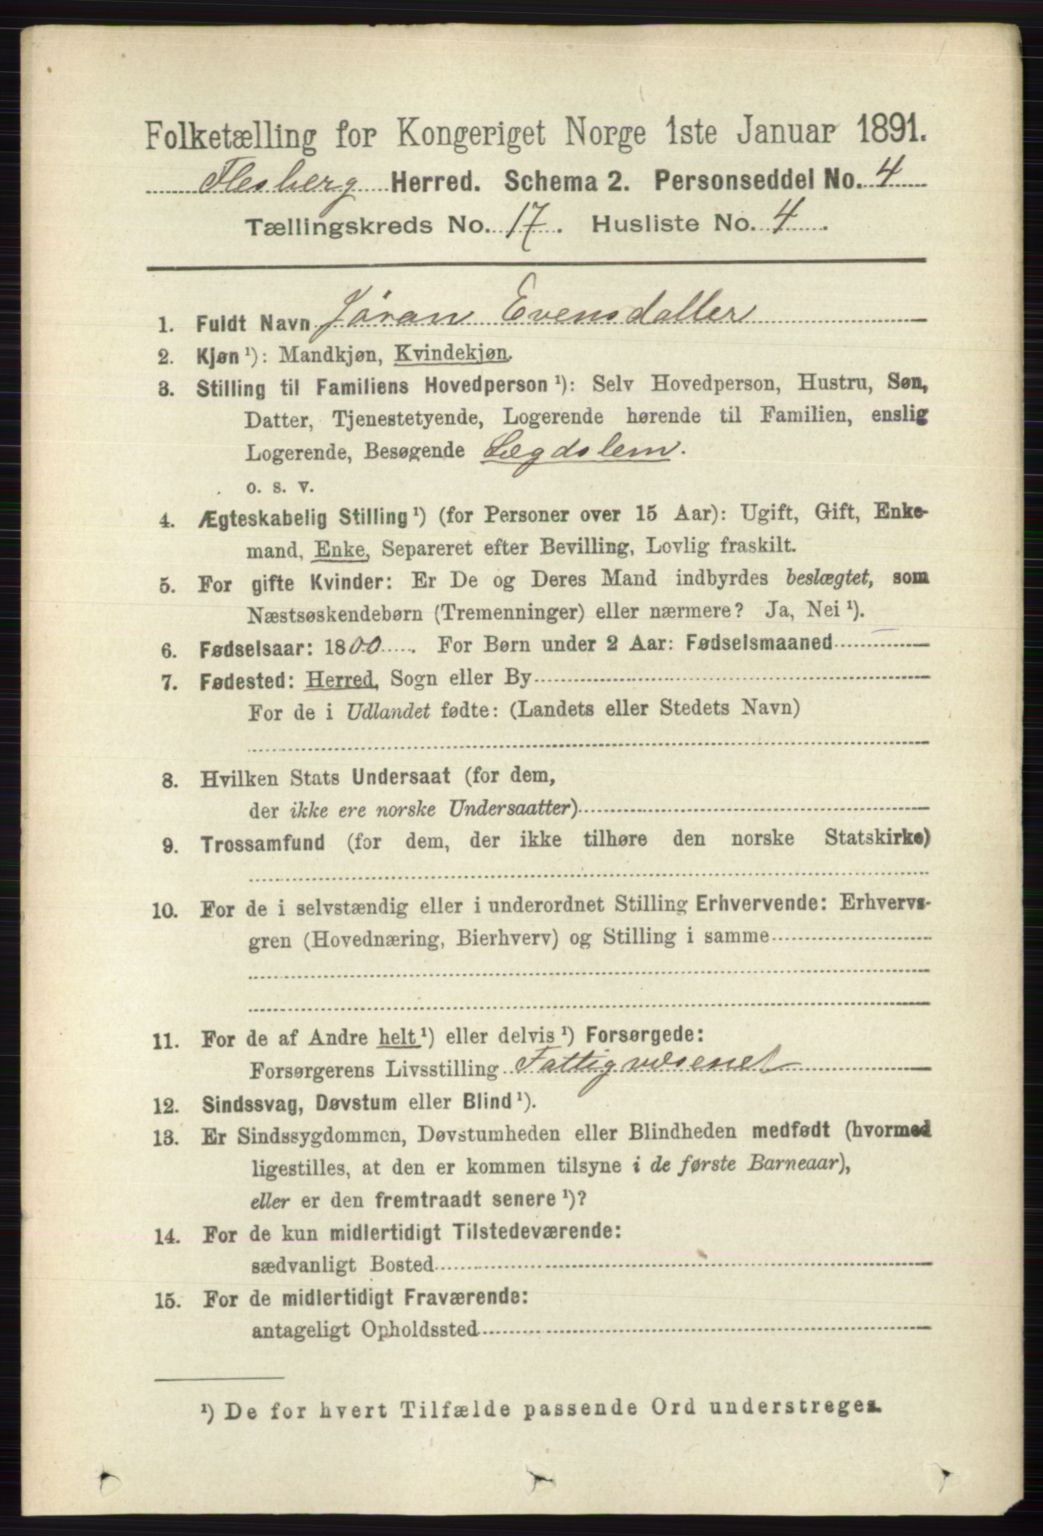 Folketælling for Kongeriget Norge 1ste Januar 1891.
Flesberg Herred. Schema 2. Personseddel No. 4
Tællingskreds No. 17. Husliste No. 4.
1. Fuldt Navn Jøran Evensdatter
2. Kjøn ¹): Mandkjøn, Kvindekjøn.
3. Stilling til Familiens Hovedperson ¹): Selv Hovedperson, Hustru, Søn,
Datter, Tjenestetyende, Logerende hørende til Familien, enslig
Logerende, Besøgende Lægdslem.
o. s. v.
4. Ægteskabelig Stilling ¹) (for Personer over 15 Aar): Ugift, Gift, Enke-
mand, Enke, Separeret efter Bevilling, Lovlig fraskilt.
5. For gifte Kvinder: Er De og Deres Mand indbyrdes beslægtet, som
Næstsøskendebørn (Tremenninger) eller nærmere? Ja, Nei ¹).
6. Fødselsaar: 1800. For Børn under 2 Aar: Fødselsmaaned
7. Fødested: Herred, Sogn eller By
For de i Udlandet fødte: (Landets eller Stedets Navn)
8. Hvilken Stats Undersaat (for dem,
der ikke ere norske Undersaatter)
9. Trossamfund (for dem, der ikke tilhøre den norske Statskirke)
10. For de i selvstændig eller i underordnet Stilling Erhvervende: Erhvervs-
gren (Hovednæring, Bierhverv) og Stilling i samme
11. For de af Andre helt ¹) eller delvis ¹) Forsørgede:
Forsørgerens Livsstilling Fattigvæsenet
12. Sindssvag, Døvstum eller Blind ¹).
13. Er Sindssygdommen, Døvstumheden eller Blindheden medfødt (hvormed
ligestilles, at den er kommen tilsyne i de første Barneaar),
eller er den fremtraadt senere ¹)?
14. For de kun midlertidigt Tilstedeværende:
sædvanligt Bosted
15. For de midlertidigt Fraværende:
antageligt Opholdssted
¹) De for hvert Tilfælde passende Ord understreges.